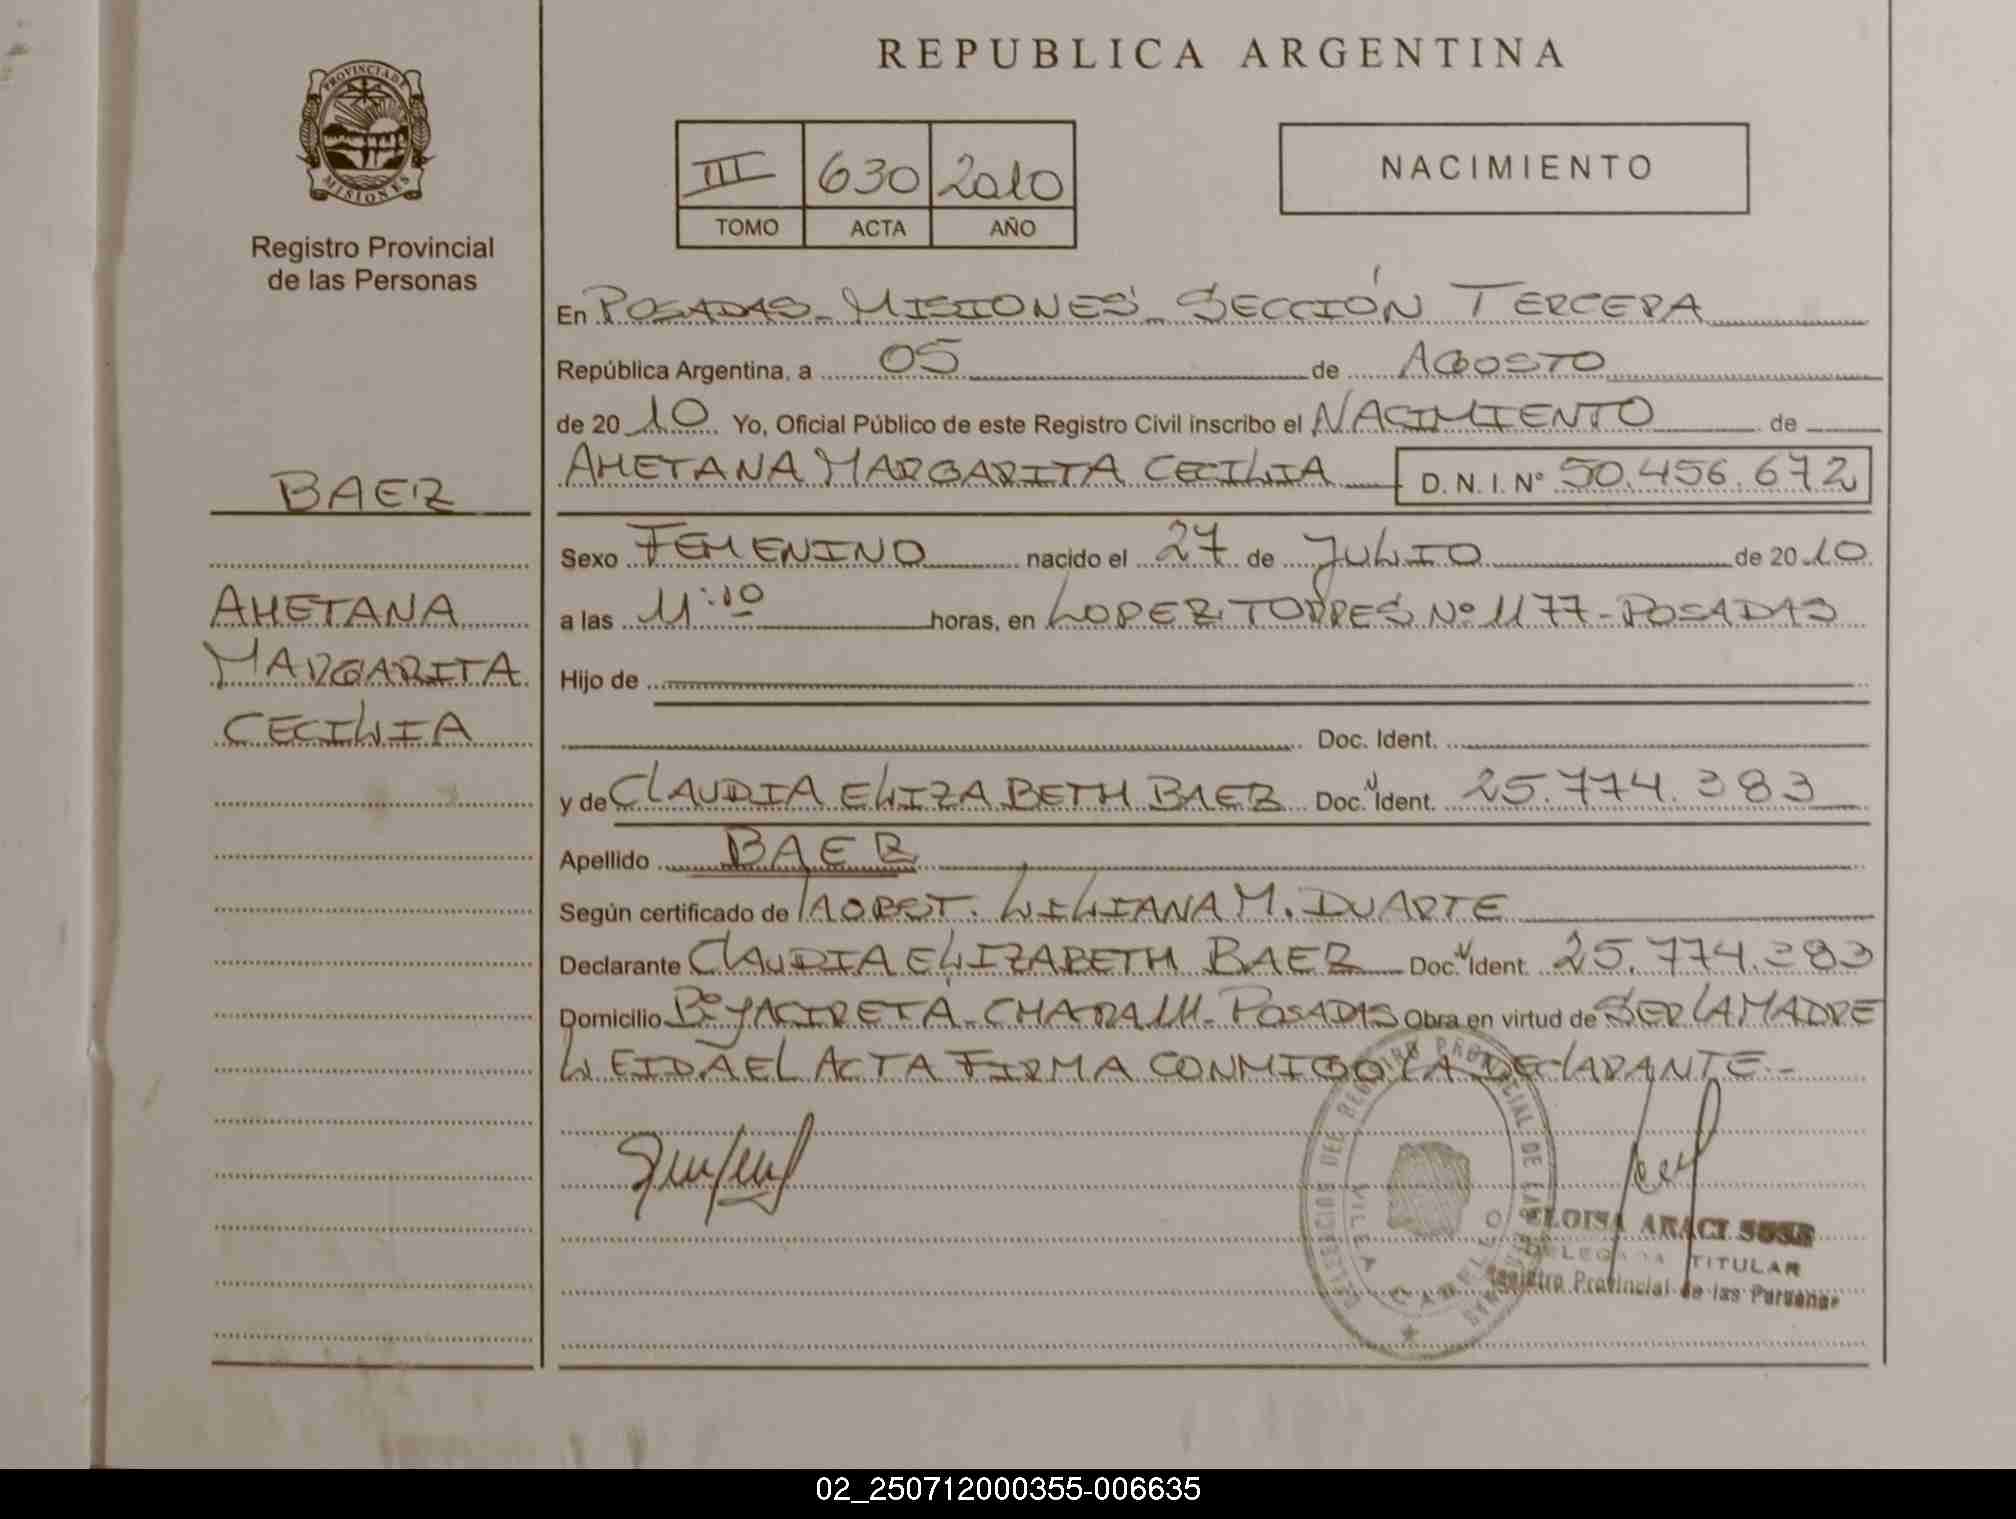 REPUBLICA ARGENTINA
PROVINCIA DE
MISIONES
Registro Provincial
de las Personas
III 630 2010
TOMO ACTA AÑO
NACIMIENTO
En POSADAS - MISIONES - SECCIÓN TERCERA
República Argentina, a 05 de AGOSTO
de 2010 Yo, Oficial Público de este Registro Civil inscribo el NACIMIENTO de
AHETANA MARGARITA CECILIA D. N. I. N° 50.456.672
BAEZ
AHETANA
MARGARITA
CECILIA
Sexo FEMENINO nacido el 27 de JULIO de 2010
a las 11:10 horas, en LOPEZ TORRES Nº 1177 - POSADAS
Hijo de
Doc. Ident.
y de CLAUDIA ELIZABETH BAEZ Doc. Ident. 25.774.383
Apellido BAEZ
Según certificado de LILIANA M. DUARTE
Declarante CLAUDIA ELIZABETH BAEZ Doc. Ident. 25.774.383
Domicilio Bº YACIRETA - POSADAS Obra en virtud de SER LA MADRE
LEIDA EL ACTA FIRMA CONMIGO LA DECLARANTE.-
VILLA CABELLO
ELOISA ARACI
DELEGADA TITULAR
Registro Provincial de las Personas
02_250712000355-006635